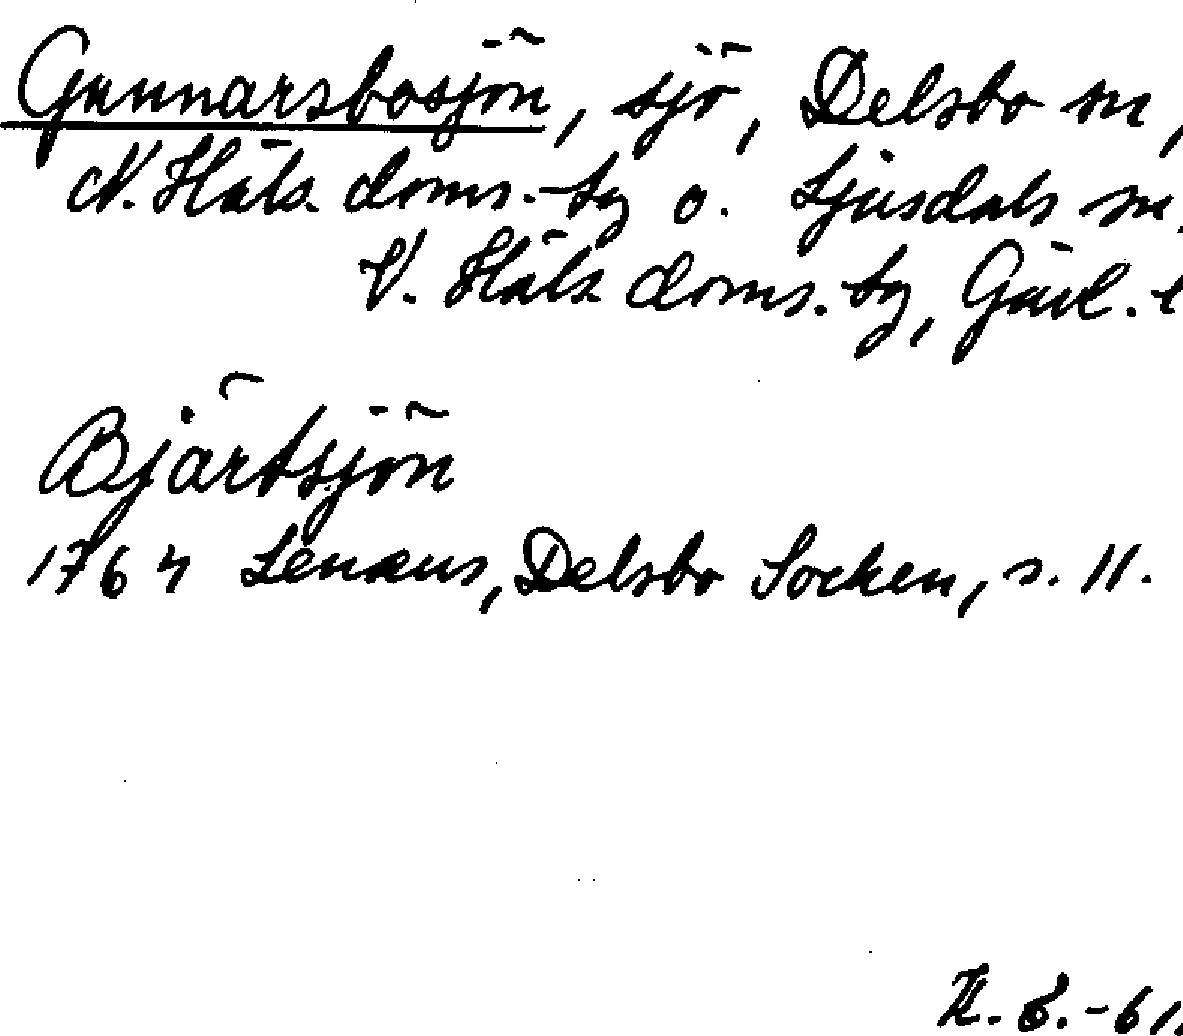 Gunnarsbosjön, sjö, Delsbo sn,
N. Häls. doms.-sg o. Ljusdals sn,
V. Häls. doms.-sg, Gävl. l
Bjärtsjön
1764 Lenæus, Delsbo Socken, s. 11.
-61.